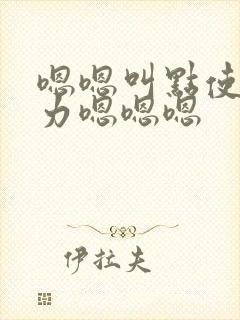 嗯嗯叫點使
力嗯嗯嗯
伊拉夫